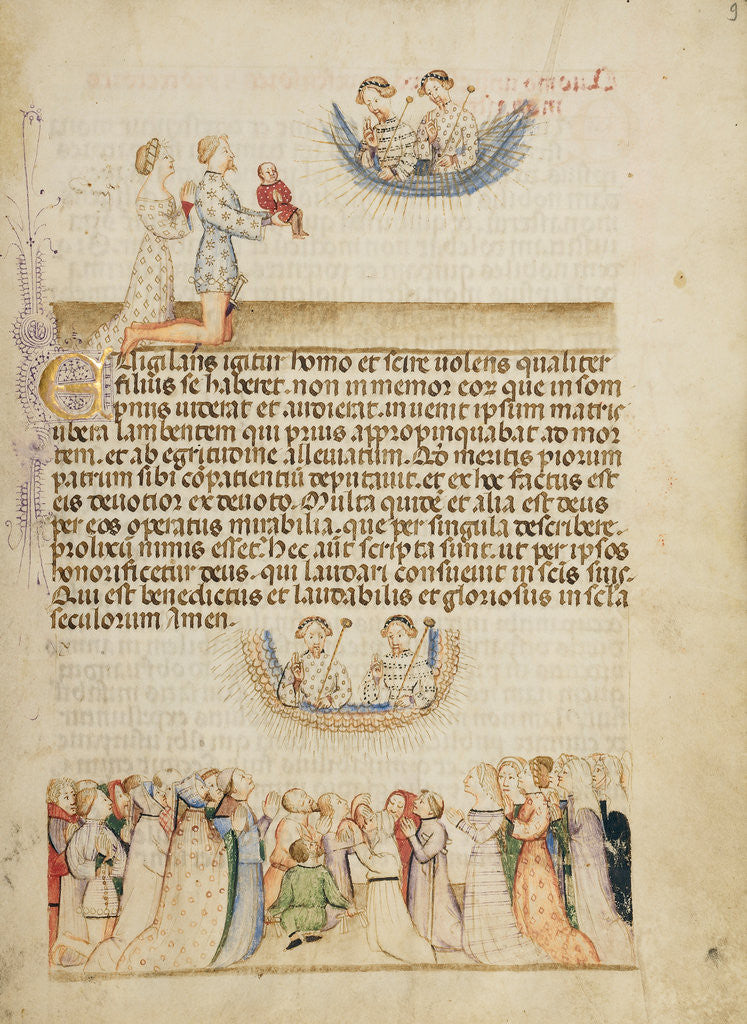 9
Euigilans igitur homo et scire uolens qualiter
filius se haberet. non inmemor eoꝝ que in som
pniis uiderat et audierat. inuenit ipsum matris
ubera lambentem qui prius appropinquabat ad mor
tem. et ab egritudine alleuiatum. Qd̓ meritis piorum
patrum sibi co̅patientiu̅ deputauit. et ex hoc factus est
eis deuotior ex deuoto. Multa quide̅ et alia est deus
per eos operatus mirabilia. que per singula describere.
prolixu̅ nimis esset. Hec au̅t scripta sunt. ut per ipsos
honorificetur deus. qui laudari consueuit in sc̅is suis.
Qui est benedictus et laudabilis et gloriosus in sc̅la
seculorum Amen.